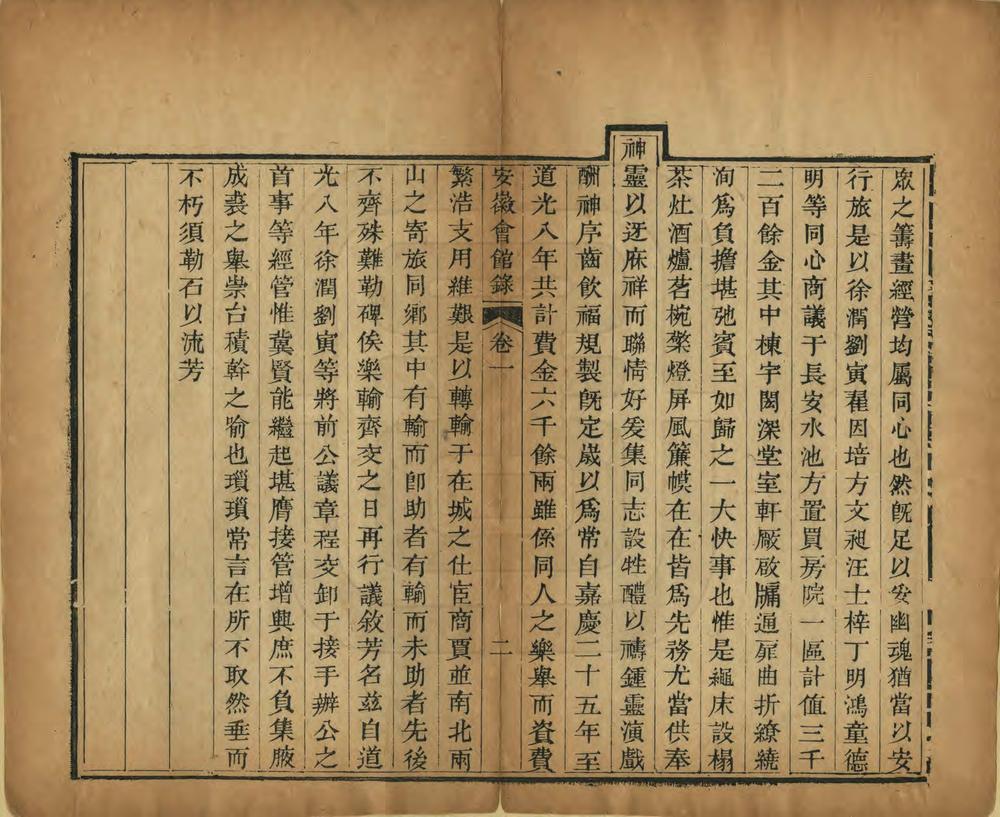 眾之籌畫經營均屬同心也然旣足以安幽魂猶當以安
行旅是以徐潤劉寅翟因培方文昶汪士梓丁明鴻童德
明等同心商議于長安水池方置買房院一區計值三千
二百餘金其中棟宇閎深堂室軒厰啟牖通扉曲折繚繞
洵爲負擔堪弛賓至如歸之一大快事也惟是繩床設榻
茶灶酒爐茗椀檠燈屏風簾幙在在皆爲先務尤當供奉
神靈以迓庥祥而聯情好爰集同志設牲醴以禱鍾靈演戲
酬神序齒飲福規製旣定歲以爲常自嘉慶二十五年至
道光八年共計費金六千餘兩雖係同人之樂舉而資費
安徽會館錄 卷一 二
繁浩支用維艱是以轉輸于在城之仕宦商賈並南北兩
山之寄旅同鄉其中有輸而卽助者有輸而未助者先後
不齊殊難勒碑俟樂輸齊交之日再行議敘芳名兹自道
光八年徐潤劉寅等將前公議章程交卸于接手辦公之
首事等經管惟冀賢能繼起堪膺接管增興庶不負集腋
成裘之舉崇台積幹之喻也瑣瑣常言在所不取然垂而
不朽須勒石以流芳